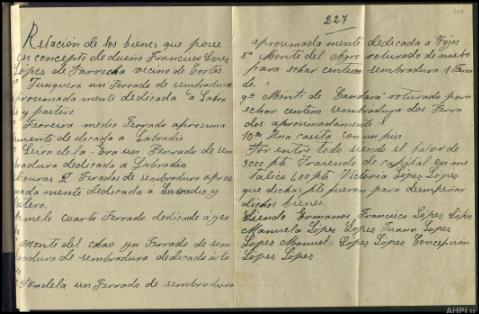 Relación de los bienes que posee
en concepto de dueño Francisco López
López de Farrocha vecino de Cortes
Funquera un Ferrado de sembradura
aproximada mente dedicada a Labra
y pastero
medio Ferrado aproxima
mente dedicada a Labradío
Leiro de la Era un Ferrado de sem
bradura dedicado a Labradío
Ferrados de sembradura aprox
mada mente dedicada a Labradío y
cuarto Ferrado dedicado a
Monte del un Ferrado de sem
bradura de sembradura dedicado á
un Ferrado de sembradura
227
aproximada mente dedicada a Tojos
8º Monte del Agro roturado de nuevo
para echar centeno sembradura 1 Ferra
do.
9º Monte de Gandara roturado para
echar centeno sembradura dos Ferra
dos aproximadamente
10º Una casita con un piso
Por entre todo siendo el valor de
3000 pts Trayendo de capital
400 pts Victoria López López
que dichas pts fueron para desempeñar
dichos bienes.
Siendo Ermanos Francisco López López
Manuela López López Juana López
López Manuel López López Concepción
López López
AHPL